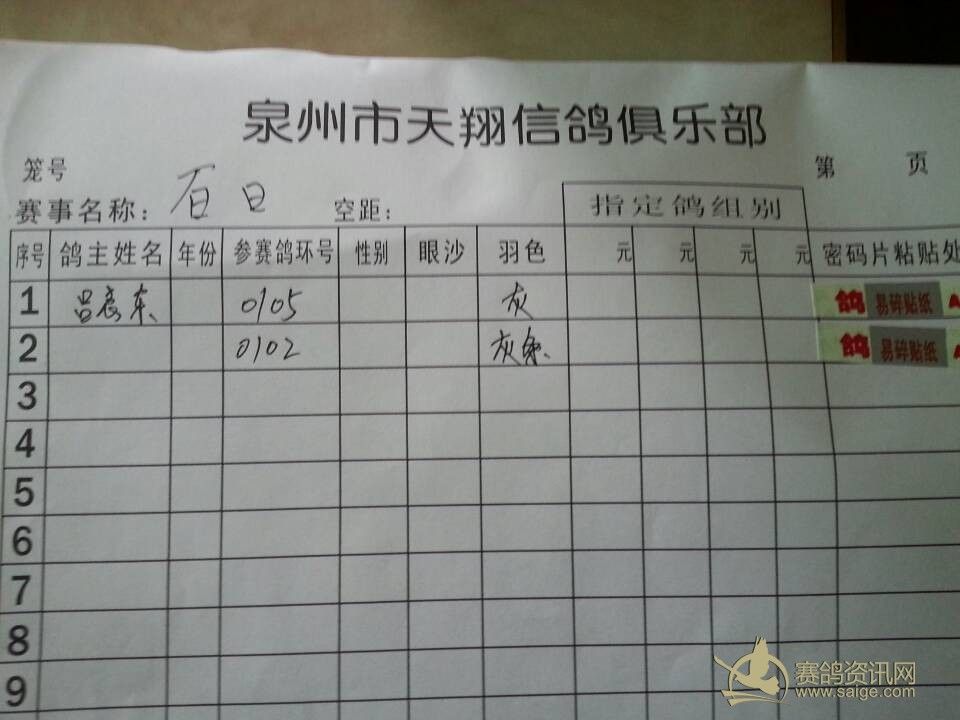 泉州市天翔信鸽俱乐部
笼号 第 页
赛事名称: 百日 空距: 指定鸽组别
序号 鸽主姓名 年份 参赛鸽环号 性别 眼沙 羽色 元 元 元 元 密码片粘贴处
1 吕 东 0105 灰 鸽 易碎贴纸
2 0102 灰 鸽 易碎贴纸
3
4
5
6
7
8
9
赛鸽资讯网
www.saige.com